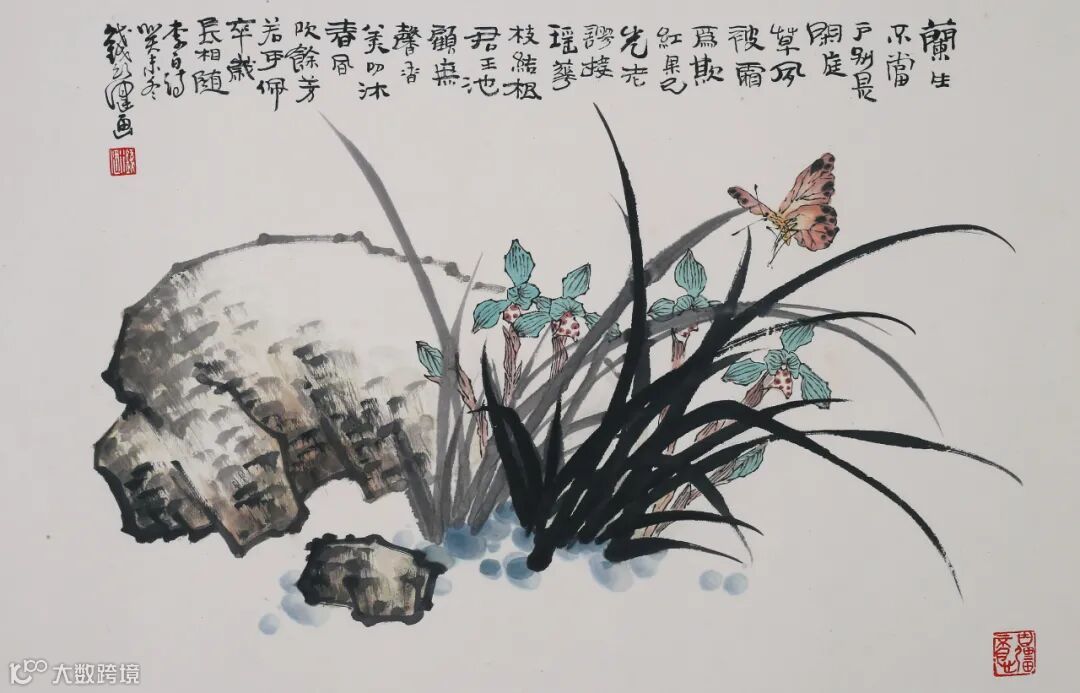 蘭生
不當
戶別是
閑庭
草夙
被霜
爲欺
紅果已
先老
謬接
瑶華
枝結根
君王池
顧無
馨香
美叨沐
春風
吹餘芳
若可佩
卒歲
長相随
李白詩
癸未冬
錢行健画
大数跨境